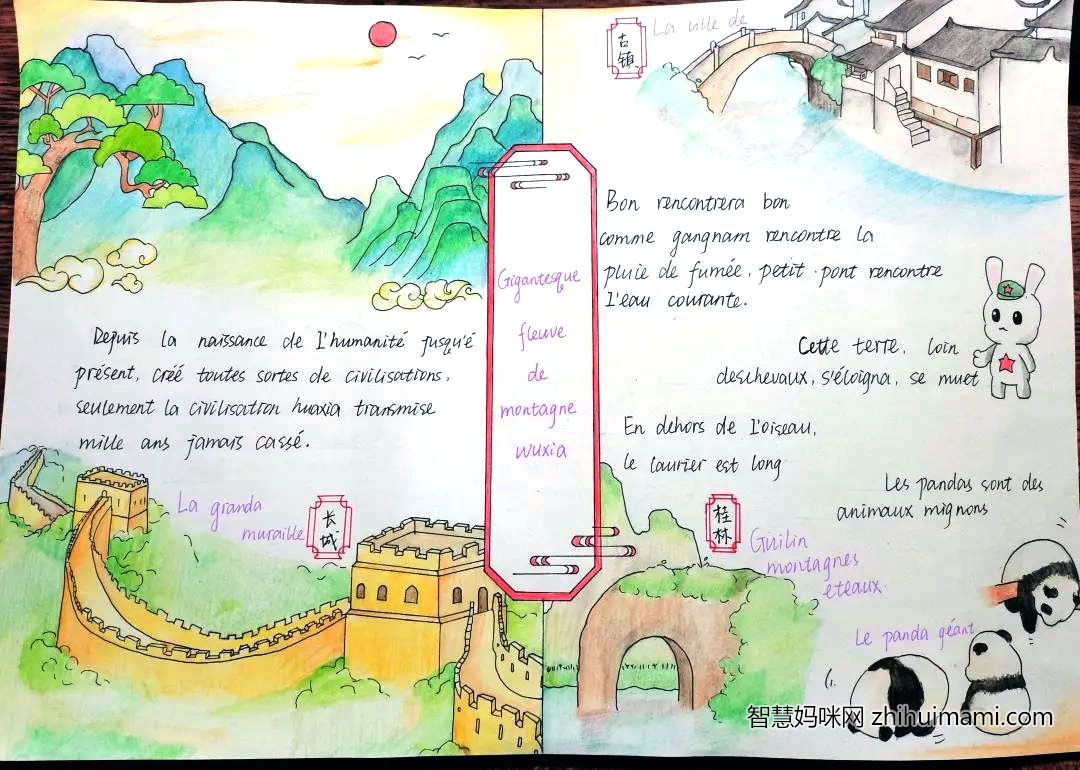 古镇
La ville de
Gigantesque
fleuve
de
montagne
wuxia
Depuis la naissance de l'humanité jusqu'é
présent, créé toutes sortes de civilisations,
seulement la civilisation huaxia transmise
mille ans jamais cassé.
La granda
muraille
长城
Bon rencontrera bon
comme gangnam rencontre la
pluie de fumée, petit pont rencontre
l'eau courante.
Cette terre, loin
deschevaux, s'éloigna, se muet
En dehors de l'oiseau,
le laurier est long
Les pandas sont des
animaux mignons
桂林
Guilin
montagnes
eteaux.
Le panda géant
智慧妈咪网 zhihuimami.com